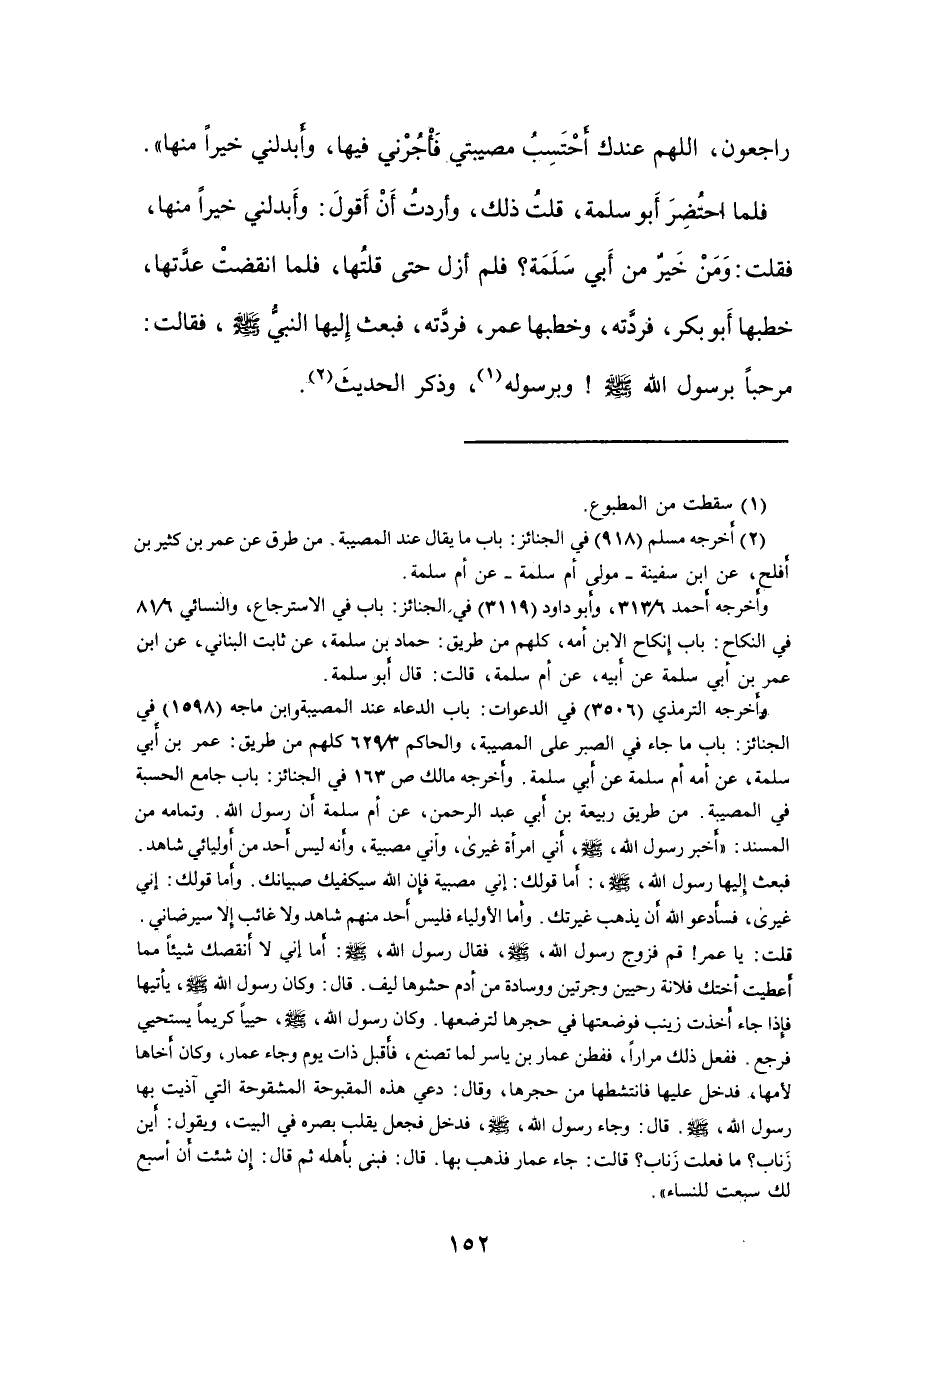 راجعون، اللهم عندك أَحْتَسِبُ مصيبتي فَأْجُرْني فيها، وأَبدلني خيراً منها».
فلما احتُضِرَ أَبو سلمة، قلتُ ذلك، وأردتُ أَنْ أَقولَ: وأَبدلني خيراً منها،
فقلت: وَمَنْ خَيرٌ من أَبي سَلَمَة؟ فلم أزل حتى قلتُها، فلما انقضتْ عدَّتها،
خطبها أَبو بكر، فردَّته، وخطبها عمر، فردَّته، فبعث إِليها النبيُّ ﷺ ، فقالت:
مرحباً برسول الله ﷺ ! وبرسوله(١)، وذكر الحديثَ(٢).
(١) سقطت من المطبوع.
(٢) أخرجه مسلم (٩١٨) في الجنائز: باب ما يقال عند المصيبة. من طرق عن عمر بن كثير بن
أفلح، عن ابن سفينة ـ مولى أم سلمة ـ عن أم سلمة.
وأخرجه أحمد ٣١٣/٦، وأبو داود (٣١١٩) في الجنائز: باب في الاسترجاع، والنسائي ٨١/٦
في النكاح: باب إنكاح الابن أمه، كلهم من طريق: حماد بن سلمة، عن ثابت البناني، عن ابن
عمر بن أبي سلمة عن أبيه، عن أم سلمة، قالت: قال أبو سلمة.
وأخرجه الترمذي (٣٥٠٦) في الدعوات: باب الدعاء عند المصيبة وابن ماجه (١٥٩٨) في
الجنائز: باب ما جاء في الصبر على المصيبة، والحاكم ٦٢٩/٣ كلهم من طريق: عمر بن أبي
سلمة، عن أمه أم سلمة عن أبي سلمة. وأخرجه مالك ص ١٦٣ في الجنائز: باب جامع الحسبة
في المصيبة. من طريق ربيعة بن أبي عبد الرحمن، عن أم سلمة أن رسول الله. وتمامه من
المسند: «أخبر رسول الله، ﷺ، أني امرأة غيرى، وأني مصبية، وأنه ليس أحد من أوليائي شاهد.
فبعث إليها رسول الله، ﷺ،: أما قولك: إني مصبية فإن الله سيكفيك صبيانك. وأما قولك: إني
غيرى، فسأدعو الله أن يذهب غيرتك. وأما الأولياء فليس أحد منهم شاهد ولا غائب إلا سيرضاني.
قلت: يا عمر! قم فزوج رسول الله، ﷺ، فقال رسول الله، ﷺ: أما إني لا أنقصك شيئاً مما
أعطيت أختك فلانة رحيين وجرتين ووسادة من أدم حشوها ليف. قال: وكان رسول الله ﷺ، يأتيها
فإذا جاء أخذت زينب فوضعتها في حجرها لترضعها. وكان رسول الله، ﷺ، حيياً كريماً يستحيي
فرجع. ففعل ذلك مراراً، ففطن عمار بن ياسر لما تصنع، فأقبل ذات يوم وجاء عمار، وكان أخاها
لأمها، فدخل عليها فانتشطها من حجرها، وقال: دعي هذه المقبوحة المشقوحة التي آذيت بها
رسول الله، ﷺ. قال: وجاء رسول الله، ﷺ، فدخل فجعل يقلب بصره في البيت، ويقول: أين
زَناب؟ ما فعلت زَناب؟ قالت: جاء عمار فذهب بها. قال: فبنى بأهله ثم قال: إن شئت أن أسبع
لك سبعت للنساء».
١٥٢